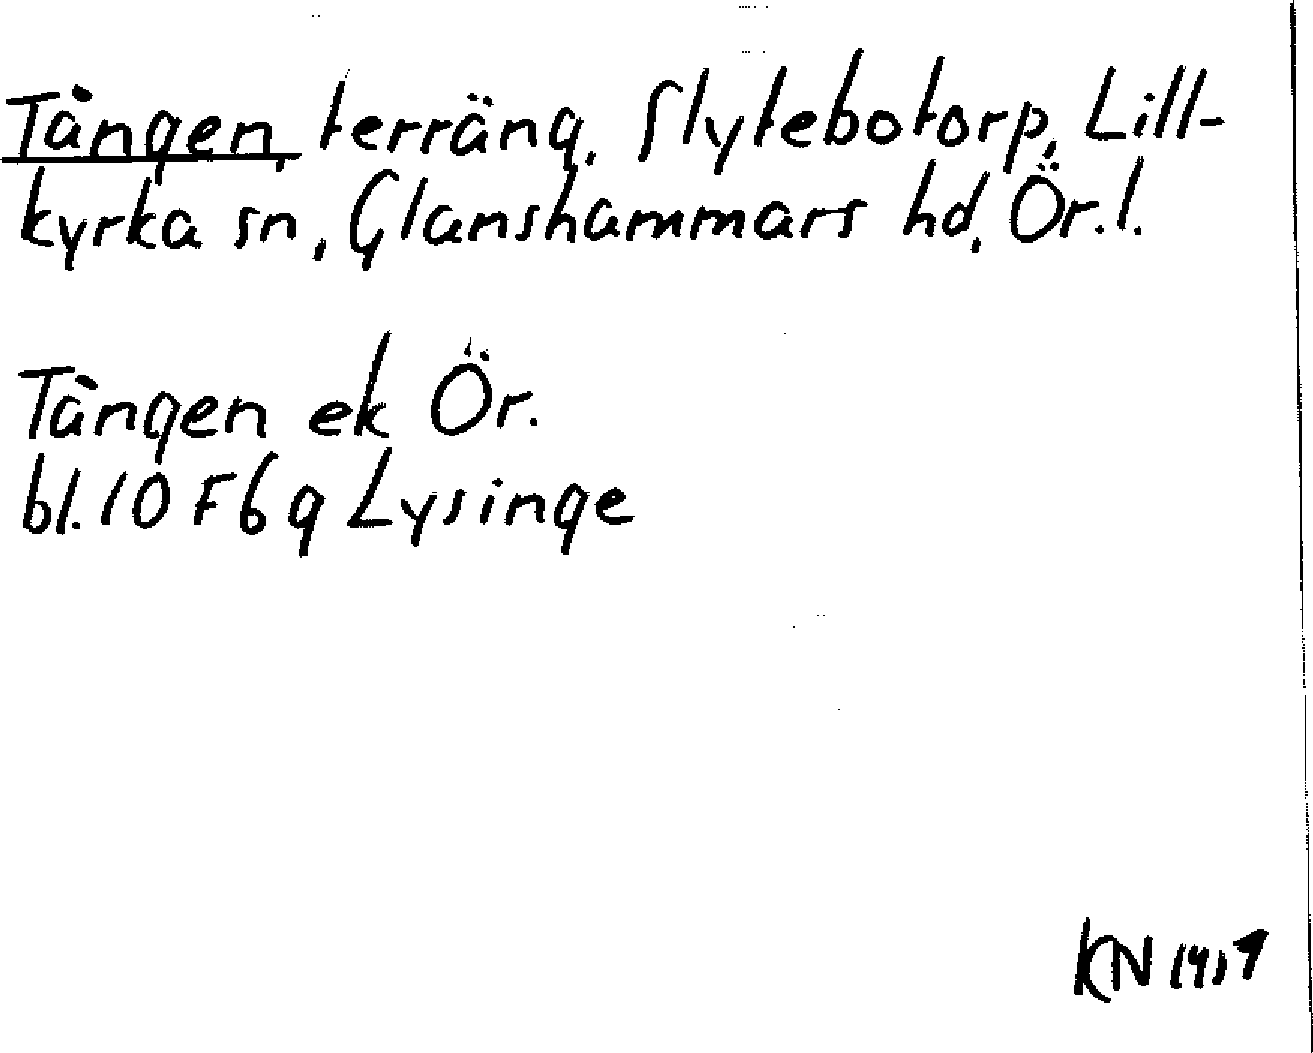 Tången, terräng, Slytebotorp, Lill-
kyrka sn, Glanshammars hd, Ör.l.
Tången ek Ör.
bl. 10 F 6 g Lysinge
KN